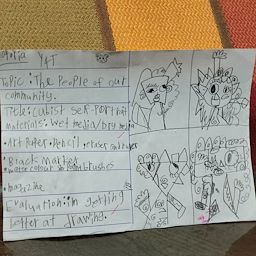 Y4T
Topic: The People of our
community.
Title: Cubist self-Portrait
materials: wet media/Dry media
• Art Paper • Pencil • eraser
• Black marker
• water colour • brushes
• magazine
Evaluation: im getting
better at drawing.